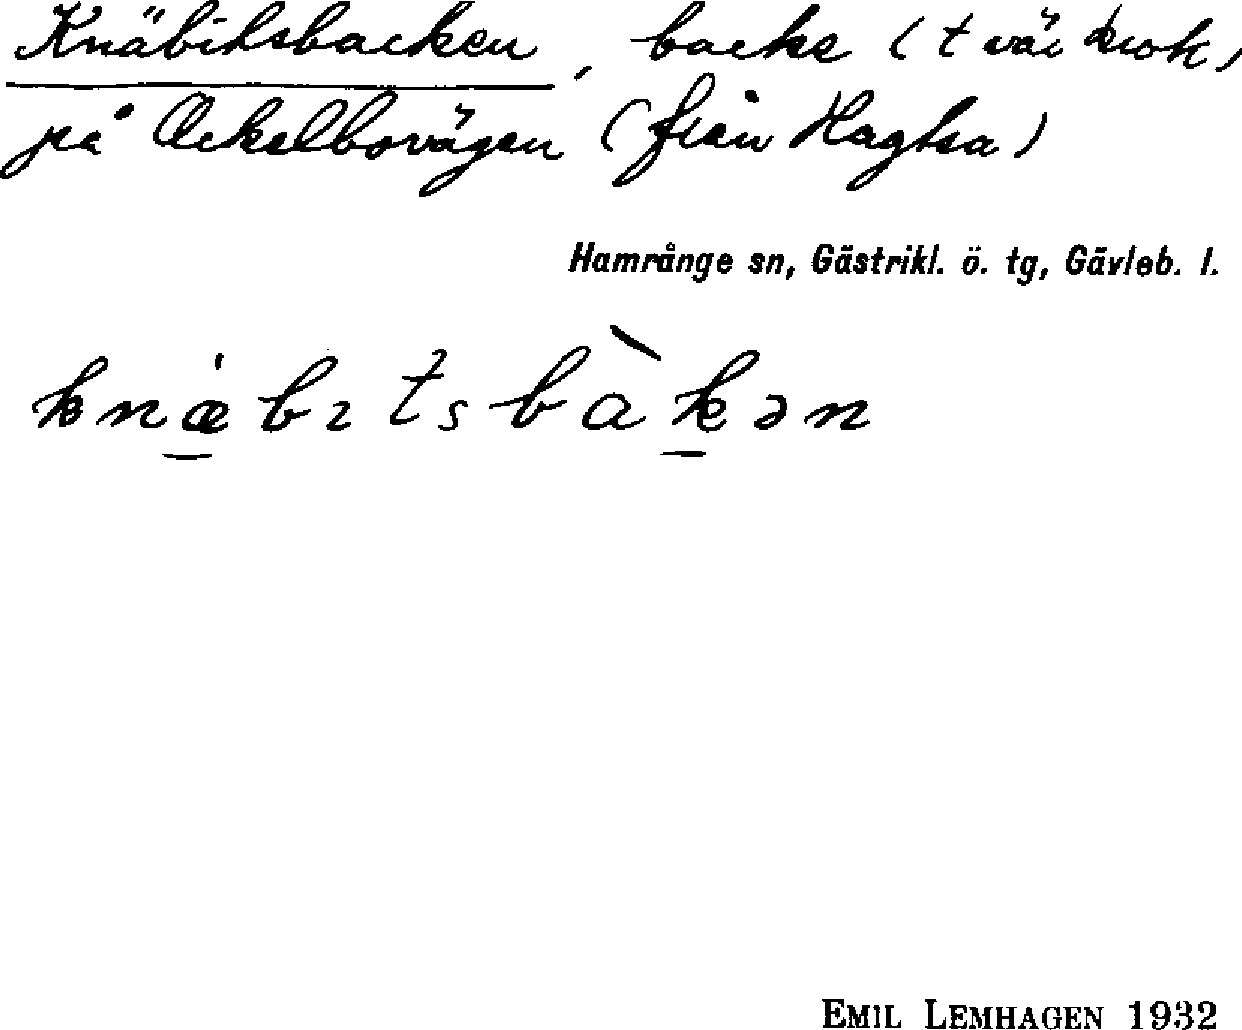 Knäbitsbacken, backe (tvär krok)
på Ockelbovägen (från Hagsta)
Hamrånge sn, Gästrikl. ö. tg, Gävleb. l.
knæ̀bɪtsbàkən
EMIL LEMHAGEN 1932